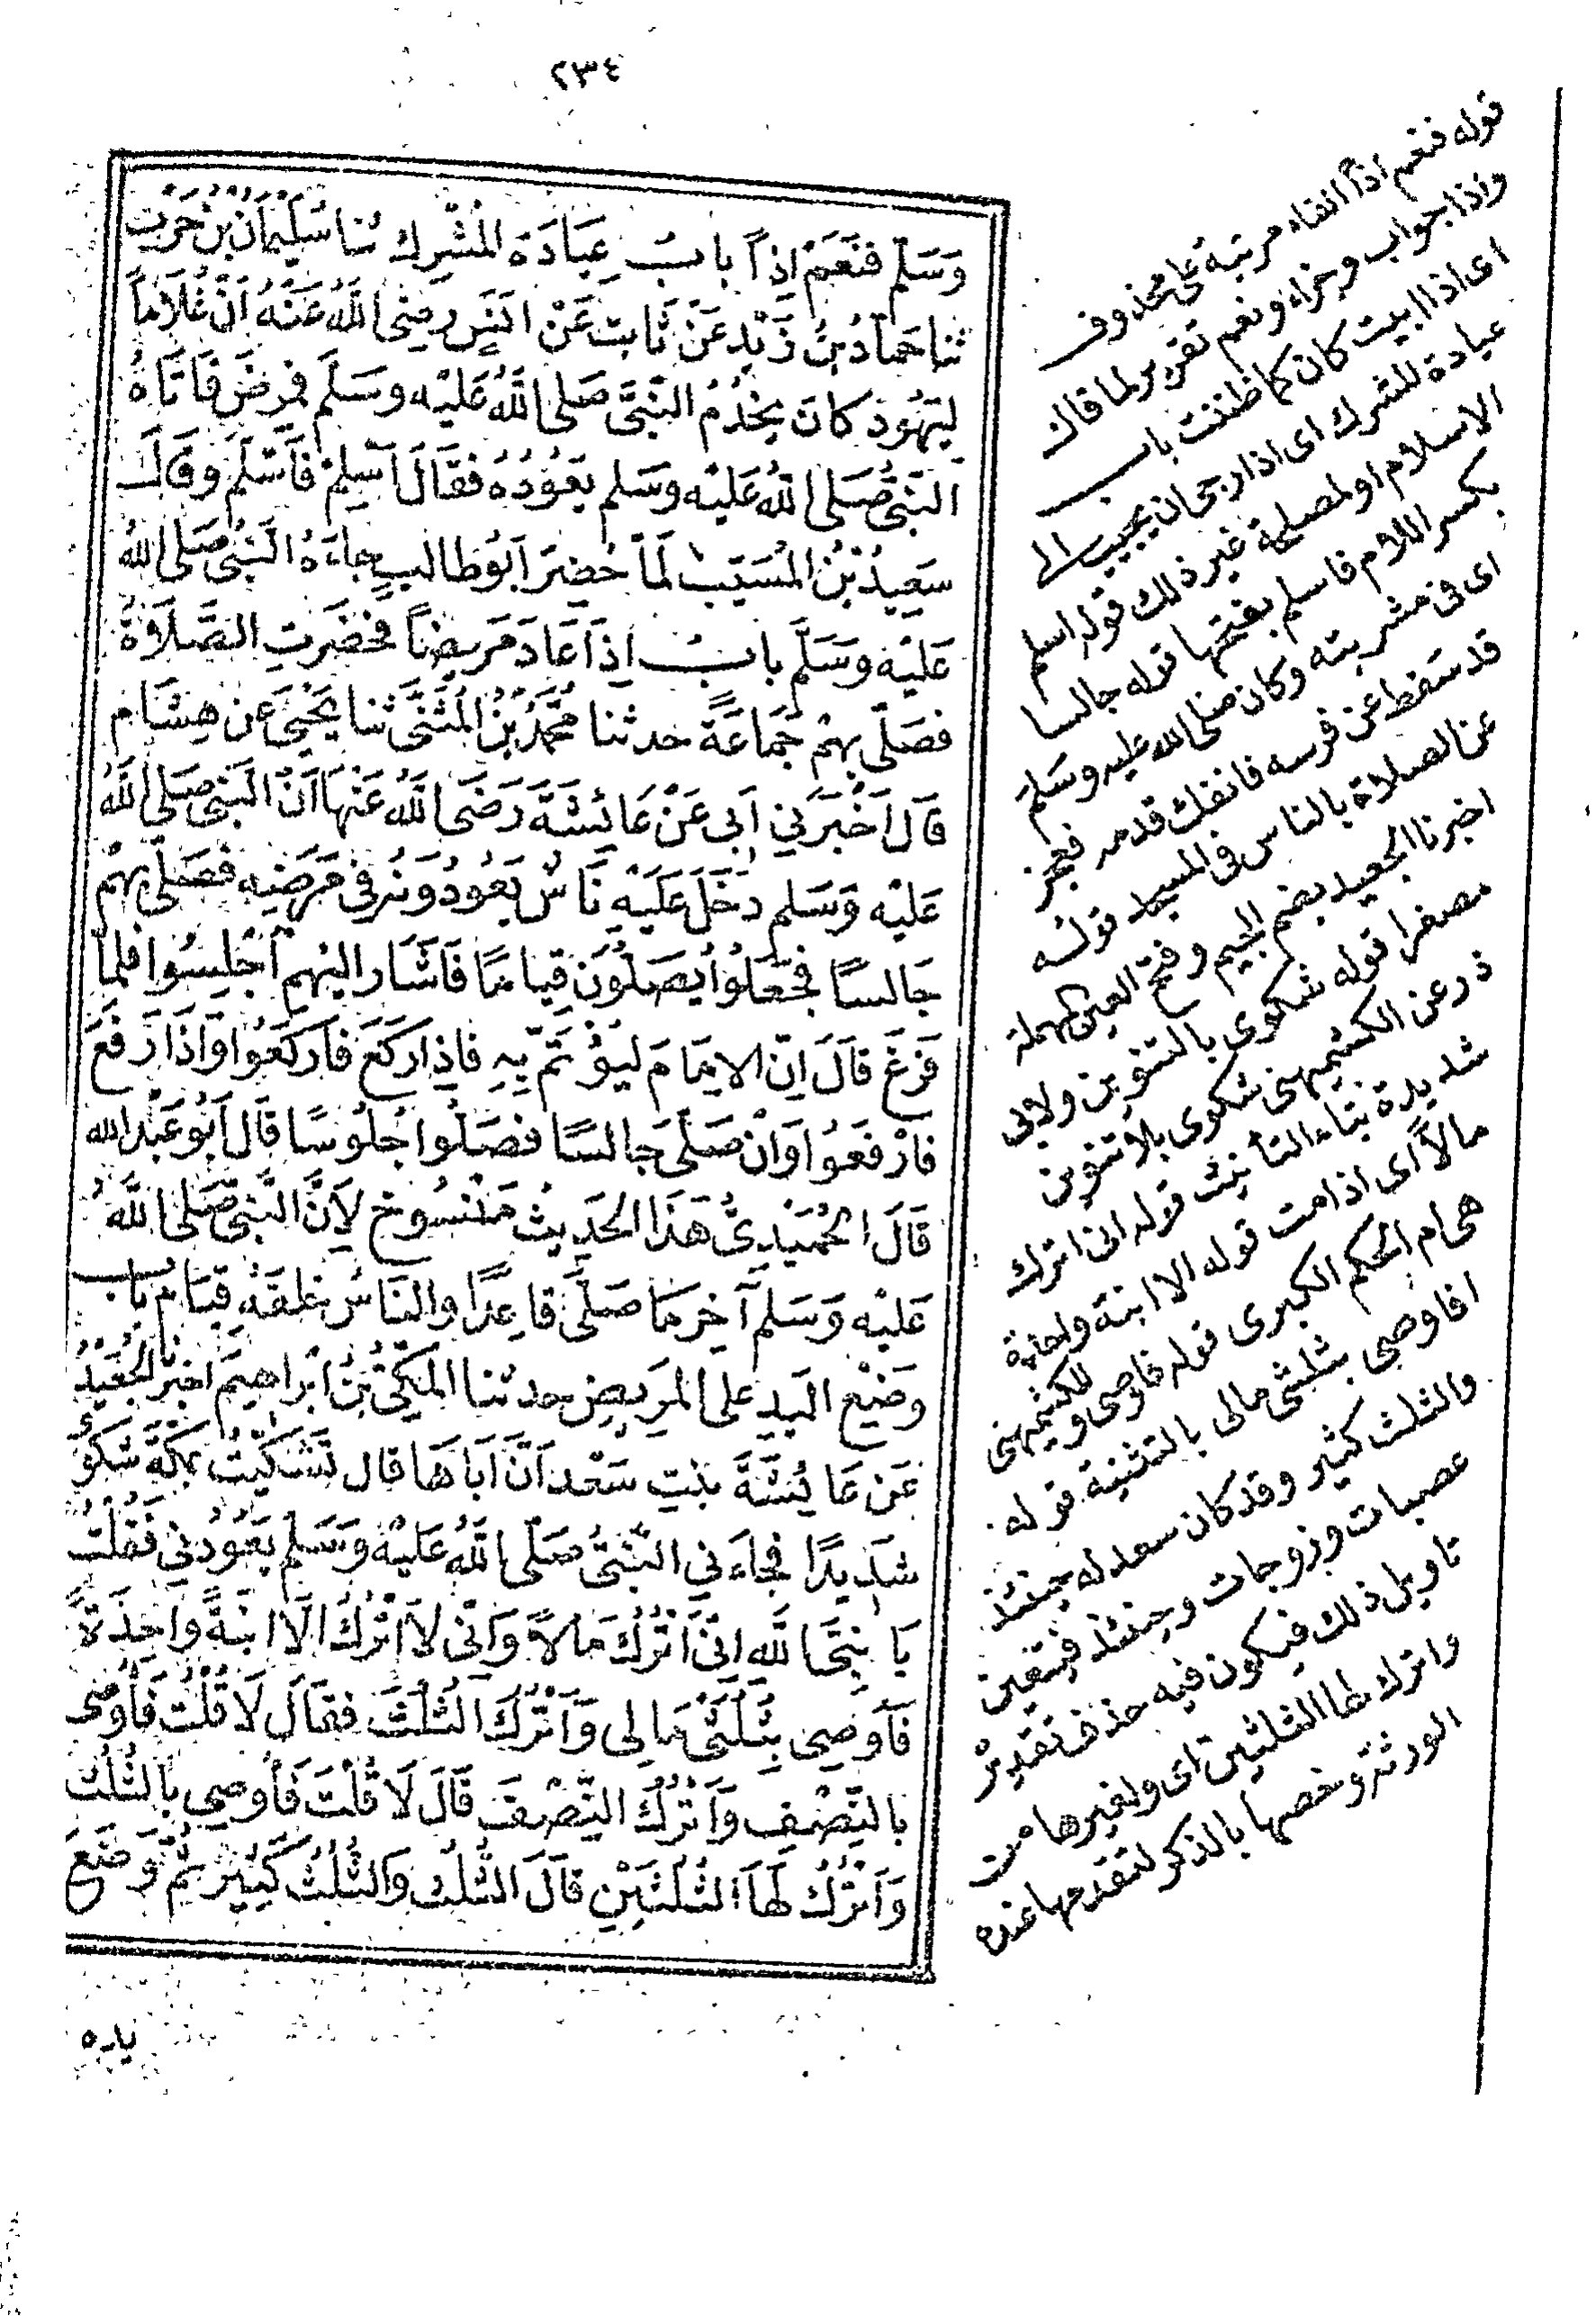 ٢٣٤
وَسَلم فنَعَمْ اِذاً بابُ عِيَادَة المُشْرِك ثنا سُلَيْمَانُ بْنُ حَرْبٍ
ثنا حَمادُ بنُ زَيْدٍ عَنْ ثَابت عَنْ اَنَسٍ رضِىَ اللّٰهُ عَنْهُ اَنَّ غُلَاماً
لِيَهُودَ كانَ يخْدُمُ النَّبىَّ صَلى اللّٰهُ عَلَيْه وسَلَّمَ فمرِضَ فَاَتَاهُ
النَّبىُّ صَلى اللّٰهُ عَليْه وَسَلم يَعُودُهُ فقَالَ اَسْلِمْ فَاَسْلَمَ وقَالَ
سَعِيدُ بْنُ المُسَيَّبْ لَمّاَ حُضِرَ اَبُوطَالبٍ جاءَهُ النَّبىُّ صَلى اللهُ
عَلَيْه وسَلَّمَ بابُ اِذَا عَادَ مَرِيضاً فحَضَرَتِ الصَّلَاةُ
فصَلّى بهِمْ جَمَاعَةً حدثنا مُحَمَّدُ بْنُ المُثَنَّى ثنا يَحْيىَ عَن هِشَام
قَال اَخْبَرَنِي اَبِى عَنْ عَائشَةَ رَضىَ اللّٰهُ عَنْهَا اَنَّ النَّبىَّ صَلى اللّٰهُ
عَليْه وَسَلم دَخَلَ عَلَيْهِ نَاسٌ يَعُودُونَهُ فِي مَرَضِهِ فصَلّى بهِمْ
جَالسًا فجَعَلُوا يُصَلُّونَ قِيامًا فَاَشَار اليْهم اَجْلِسُوا فلمّا
فَرَغَ قَالَ اِنّ الاِمَامَ ليُؤْتَمّ بِهِ فاِذا رَكَعَ فَاركَعُوا وَاِذَا رَفَعَ
فَارْفَعُوا وَاِنْ صَلّى جَالسًا فصَلُّوا جُلُوسًا قَال اَبُو عَبْد الله
قَالَ الحُمَيْدِىُّ هَذَا الحَدِيث مَنْسُوخ لِاَنَّ النَّبىَّ صَلى اللّٰهُ
عَليْه وَسَلم آخِرَ مَا صَلَّى قاعِدًا والنَاسُ خلفَهُ قِيَام بابُ
وَضْعِ اليَدِ عَلى المرِيضِ حدثنا المكّىُّ بْنُ ابْراهِيمَ اخبرَنا الجُعَيْدُ
عَنْ عَائِشَةَ بنْتِ سَعْد اَنَّ اَبَاهَا قال تَشَكّيْتُ بمكّةَ شَكوًى
شدِيدًا فجاءَنِي النَّبىُّ صَلّى اللّٰهُ عَليْهِ وَسَلم يَعُودُنِي فَقُلْتُ
يَا نبِىَّ اللّٰهِ اِنّى اَتْرُكُ مَالاً وَاِنّى لاَ اَتْرُكُ اِلّا ابْنَةً وَاحِدَةً
فَاَوصِى بِثُلُثَىْ مَالِى وَاَتْرُكُ الثُّلُثَ فقَالَ لَا قُلْتُ فَاُوصِى
بالنِّصْفِ وَاَتْرُكُ النِّصْفَ قَالَ لَا قُلْتُ فَاُوصِى بالثُّلُثِ
وَاَتْرُكُ لَهَا الثُّلُثَيْنِ قَالَ الثُّلُثُ وَالثُّلُثُ كَثِيْرٌ ثُمَّ وَضَعَ
يده
قوله فنعم اذاً الفاء مرتبة على محذوف
واذا جواب وجزاء ونعم تقرير لما قال
اى اذا ابيت كان كما ظننت باب
عيادة للشرك اى اذا رجى ان يجيب الى
الاسلام او لمصلحة غير ذلك قوله اسلم
بكسر اللام فاسلم بفتحها قوله جالسا
اى فى مشربته وكان صلى الله عليه وسلم
قد سقط عن فرسه فانفك قدمه فعجز
عن الصلاة بالناس فى المسجد قوله
اخبرنا الجعيد بضم الجيم وفتح العين المهملة
مصغرا قوله شكوى بالتنوين ولابى
ذر عن الكشميهنى شكوى بلا تنوين
شديدة بتاء التأنيث قوله انى اترك
مالاً اى اذا مت قوله الا ابنة واحدة
هى ام الحكم الكبرى قوله فاوصى وللكشميهنى
افاوصى بثلثى مالى بالتثنية قوله
والثلث كثير وقد كان سعد له حينئذ
عصبات وزوجات وحينئذ فيتعين
تاويل ذلك فيكون فيه حذف تقديره
واترك لها الثلثين اى ولغيرها من
الورثة وخصها بالذكر لتقدمها عنده